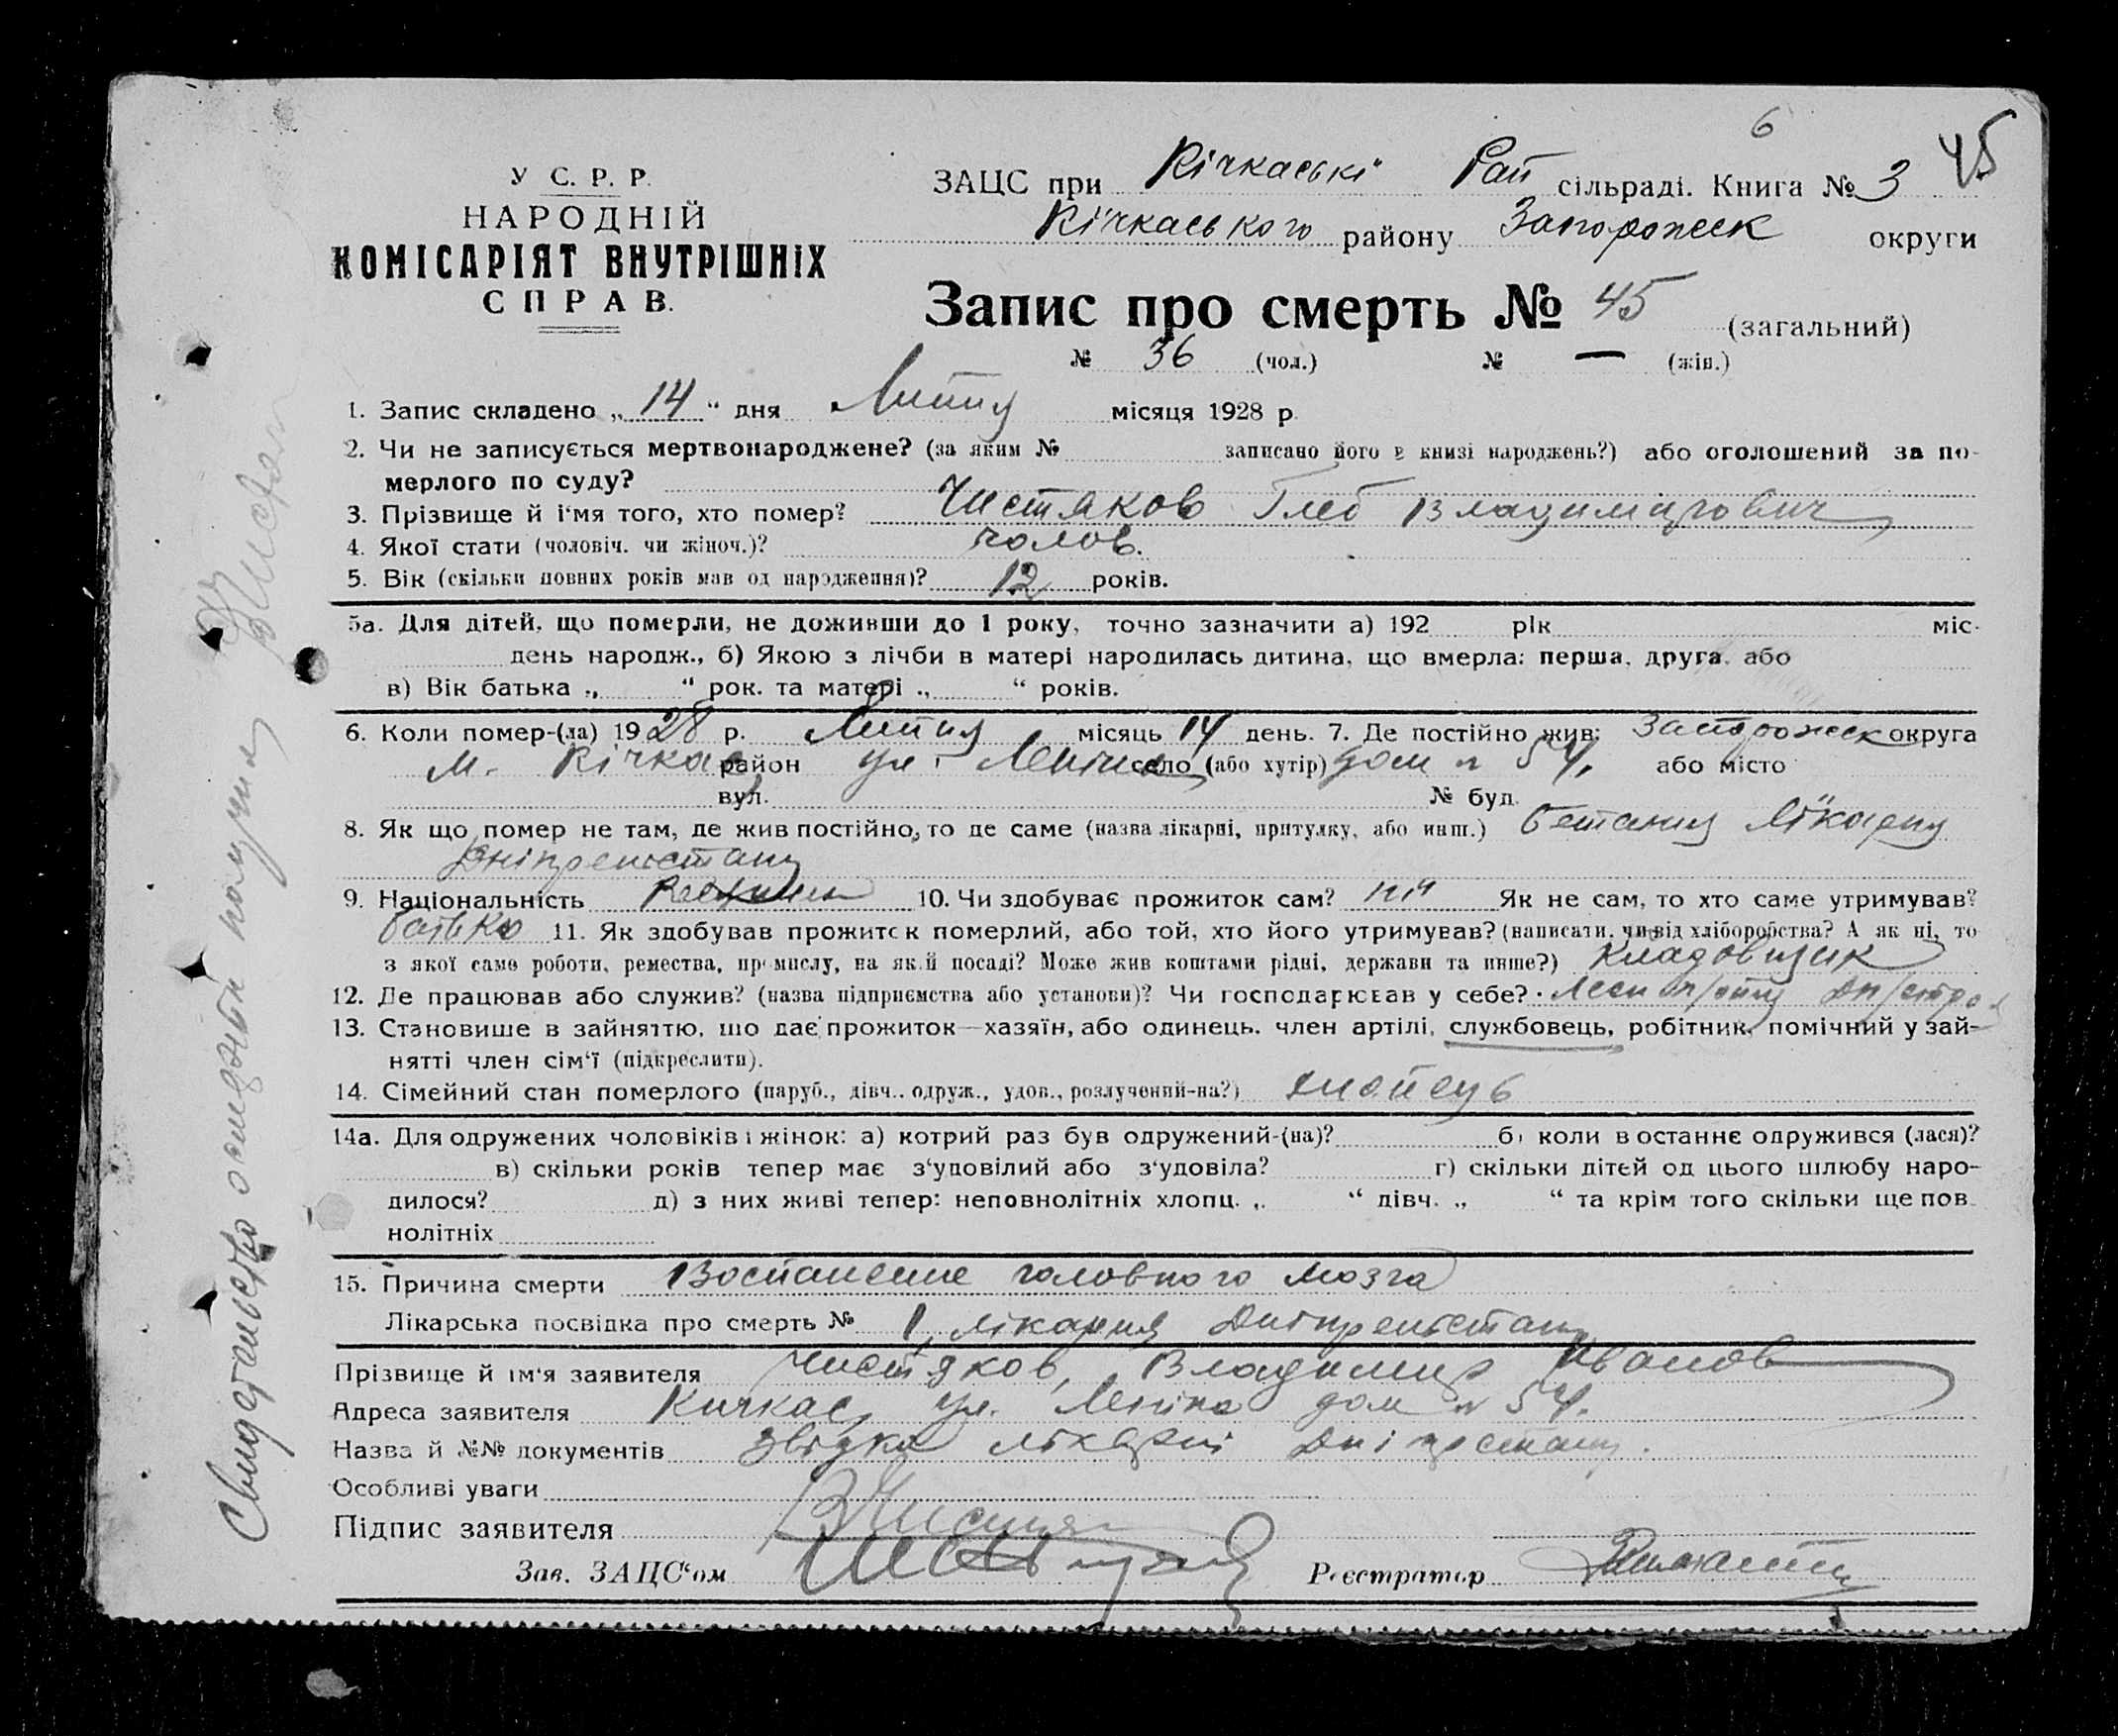 6
45
У С. Р. Р.
НАРОДНІЙ
КОМІСАРІЯТ ВНУТРІШНІХ
СПРАВ.
ЗАЦС при Кічкаські Рай сільраді. Книга № 3
Кічкаського району Запорожск округи
Запис про смерть № 45 (загальний)
№ 36 (чол.) № — (жін.)
1. Запис складено „ 14 “ дня Липня місяця 1928 р.
2. Чи не записується мертвонароджене? (за яким № записано його в книзі народжень?) або оголошений за по-
мерлого по суду?
3. Прізвище й і‘мя того, хто помер? Чистяков Глеб Владимирович
4. Якої стати (чоловіч. чи жіноч.)? чолов.
5. Вік (скільки повних років мав од народження)? 12 років.
5а. Для дітей, що померли, не доживши до 1 року, точно зазначити а) 192 рік міс.
день народж., б) Якою з лічби в матері народилась дитина, що вмерла: перша, друга, або
в) Вік батька „ “ рок. та матері „ “ років.
6. Коли помер-(ла) 1928 р. Липня місяць 14 день. 7. Де постійно жив: Запорожск округа
м. Кічкас район ул. Леніна село (або хутір) дом № 54. або місто
вул. № буд.
8. Як що помер не там, де жив постійно, то де саме (назва лікарні, притулку, або инш.) Лікарня
9. Національність 10. Чи здобуває прожиток сам? ні Як не сам, то хто саме утримував?
батько 11. Як здобував прожиток померлий, або той, хто його утримував? (написати, чи від хліборобства? А як ні, то
з якої саме роботи, ремества, промислу, на якій посаді? Може жив коштами рідні, держави та инше?) Кладовщик
12. Де працював або служив? (назва підприємства або установи)? Чи господарював у себе?
13. Становище в зайняттю, що дає прожиток—хазяїн, або одинець, член артілі, службовець, робітник, помічний у зай-
нятті член сім‘ї (підкреслити).
14. Сімейний стан померлого (паруб., дівч., одруж., удов., розлучений-на?)
14а. Для одружених чоловіків і жінок: а) котрий раз був одружений-(на)? б) коли востаннє одружився (лася)?
в) скільки років тепер має з‘удовілий або з‘удовіла? г) скільки дітей од цього шлюбу наро-
дилося? д) з них живі тепер: неповнолітніх хлопц. „ “ дівч. „ “ та крім того скільки ще пов-
нолітніх
15. Причина смерти Воспаление головного мозга
Лікарська посвідка про смерть № 1, лікарня
Прізвище й ім‘я заявителя Чистяков, Владимир Иванов
Адреса заявителя Кичкас, ул. Леніна дом № 54.
Назва й №№ документів Звідка лікарні
Особливі уваги
Підпис заявителя
Зав. ЗАЦС‘ом Реєстратор